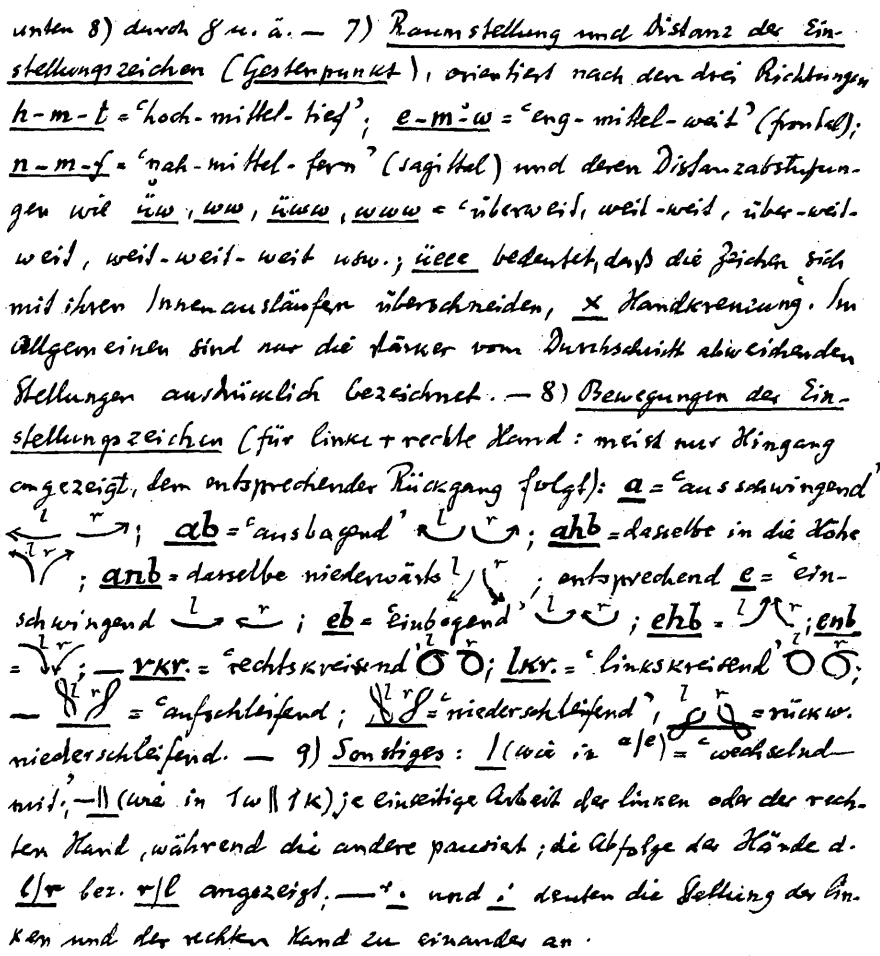 unten 8) durch 8 u. ä. — 7) Raumstellung und Distanz der Ein-
stellungszeichen (Gestenpunkt), orientiert nach den drei Richtungen
h-m-t = 'hoch-mittel-tief'; e-m-w = 'eng-mittel-weit' (frontal);
n-m-f = 'nah-mittel-fern' (sagittal) und deren Distanzabstufun-
gen wie üw, ww, üww, www = 'überweit, weit-weit, über-weit-
weit, weit-weit-weit usw.; üeee bedeutet, daß die Zeichen sich
mit ihren Innenausläufern überschneiden, x 'Handkreuzung'. Im
allgemeinen sind nur die stärker vom Durchschnitt abweichenden
Stellungen ausdrücklich bezeichnet. — 8) Bewegungen der Ein-
stellungszeichen (für linke + rechte Hand: meist nur Hingang
angezeigt, dem entsprechender Rückgang folgt): a = 'ausschwingend'
l r; ab = 'ausbogend' l r; ahb = dasselbe in die Höhe
l r; anb = dasselbe niederwärts l r; entsprechend e = 'ein-
schwingend l r; eb = 'einbogend' l r; ehb = l r; enb
= l r; — rkr. = 'rechtskreisend' l r; lkr. = 'linkskreisend' l r;
— l r = 'aufschleifend; l r = 'niederschleifend', l r = rückw.
niederschleifend. — 9) Sonstiges: / (wie in a/e) = 'wechselnd
mit'; — || (wie in 1w || 1k) je einseitige Arbeit der linken oder der rech-
ten Hand, während die andere pausiert; die Abfolge der Hände d.
l/r bez. r/l angezeigt. — und deuten die Stellung der lin-
ken und der rechten Hand zu einander an.